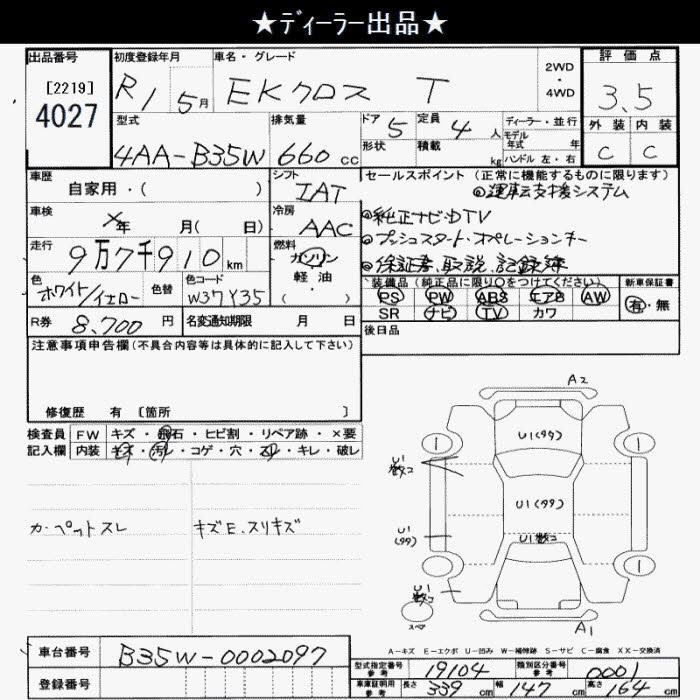 ★ディーラー出品★
出品番号 初度登録年月 車名・グレード 2WD・4WD 評価点
[2219]
4027
R1 5月 EKクロス T 3.5
型式 排気量 ドア 5 定員 4人 ディーラー・並行 外装 内装
モデル年式 年
4AA-B35W 660cc 形状 積載 kg ハンドル 左・右 C C
車歴 シフト セールスポイント(正常に機能するものに限ります)
自家用・( ) IAT ◎運転支援システム
車検 年 月( 日) 冷房 AAC ◎純正ナビ・DTV
走行 燃料 ◎プッシュスタート・オペレーションキー
9万7千910km ガソリン ◎保証書、取説、記録簿
軽・油
( )
色 色替 色コード 装備品(純正品に限り○をつけてください) 新車保証書
ホワイト/イエロー W37Y35 PS PW ABS エアB AW 有・無
SR ナビ TV カワ
R券 8,700円 名変通知期限 月 日 後日品
注意事項申告欄(不具合内容等は具体的に記入して下さい)
修復歴 有 [箇所 ]
検査員 FW キズ・飛石・ヒビ割・リペア跡・×要
記入欄 内装 キズ・汚レ・コゲ・穴・スレ・キレ・破レ
カーペットスレ キズE、スリキズ
A2
U1(99)
1 1
U1
数コ
U1(99)
U1
(99)
U1数コ
1 1
U1
数コ
スペア
A1
A-キズ E-エクボ U-凹み W-補修跡 S-サビ C-腐食 XX-交換済
車台番号 B35W-0002097
型式指定番号 参考 19104 類別区分番号 参考 0001
登録番号 車庫証明用 参考 長さ 339cm 幅 147cm 高さ 164cm